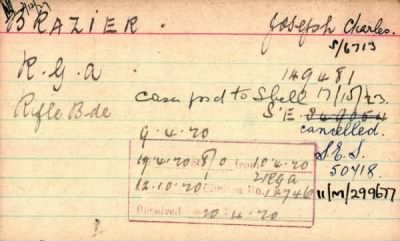 BRAZIER. Joseph Charles.
S/6713
R.G.A. 149481
Rifle Bde case fwd to Shell 17/5/23.
S.E. 849054
9.4.20 cancelled.
S.E.S.
19.4.20 10.4.20 50418.
218ga
12.10.20 No. 12746 11/M/299677
Received 20.4.20